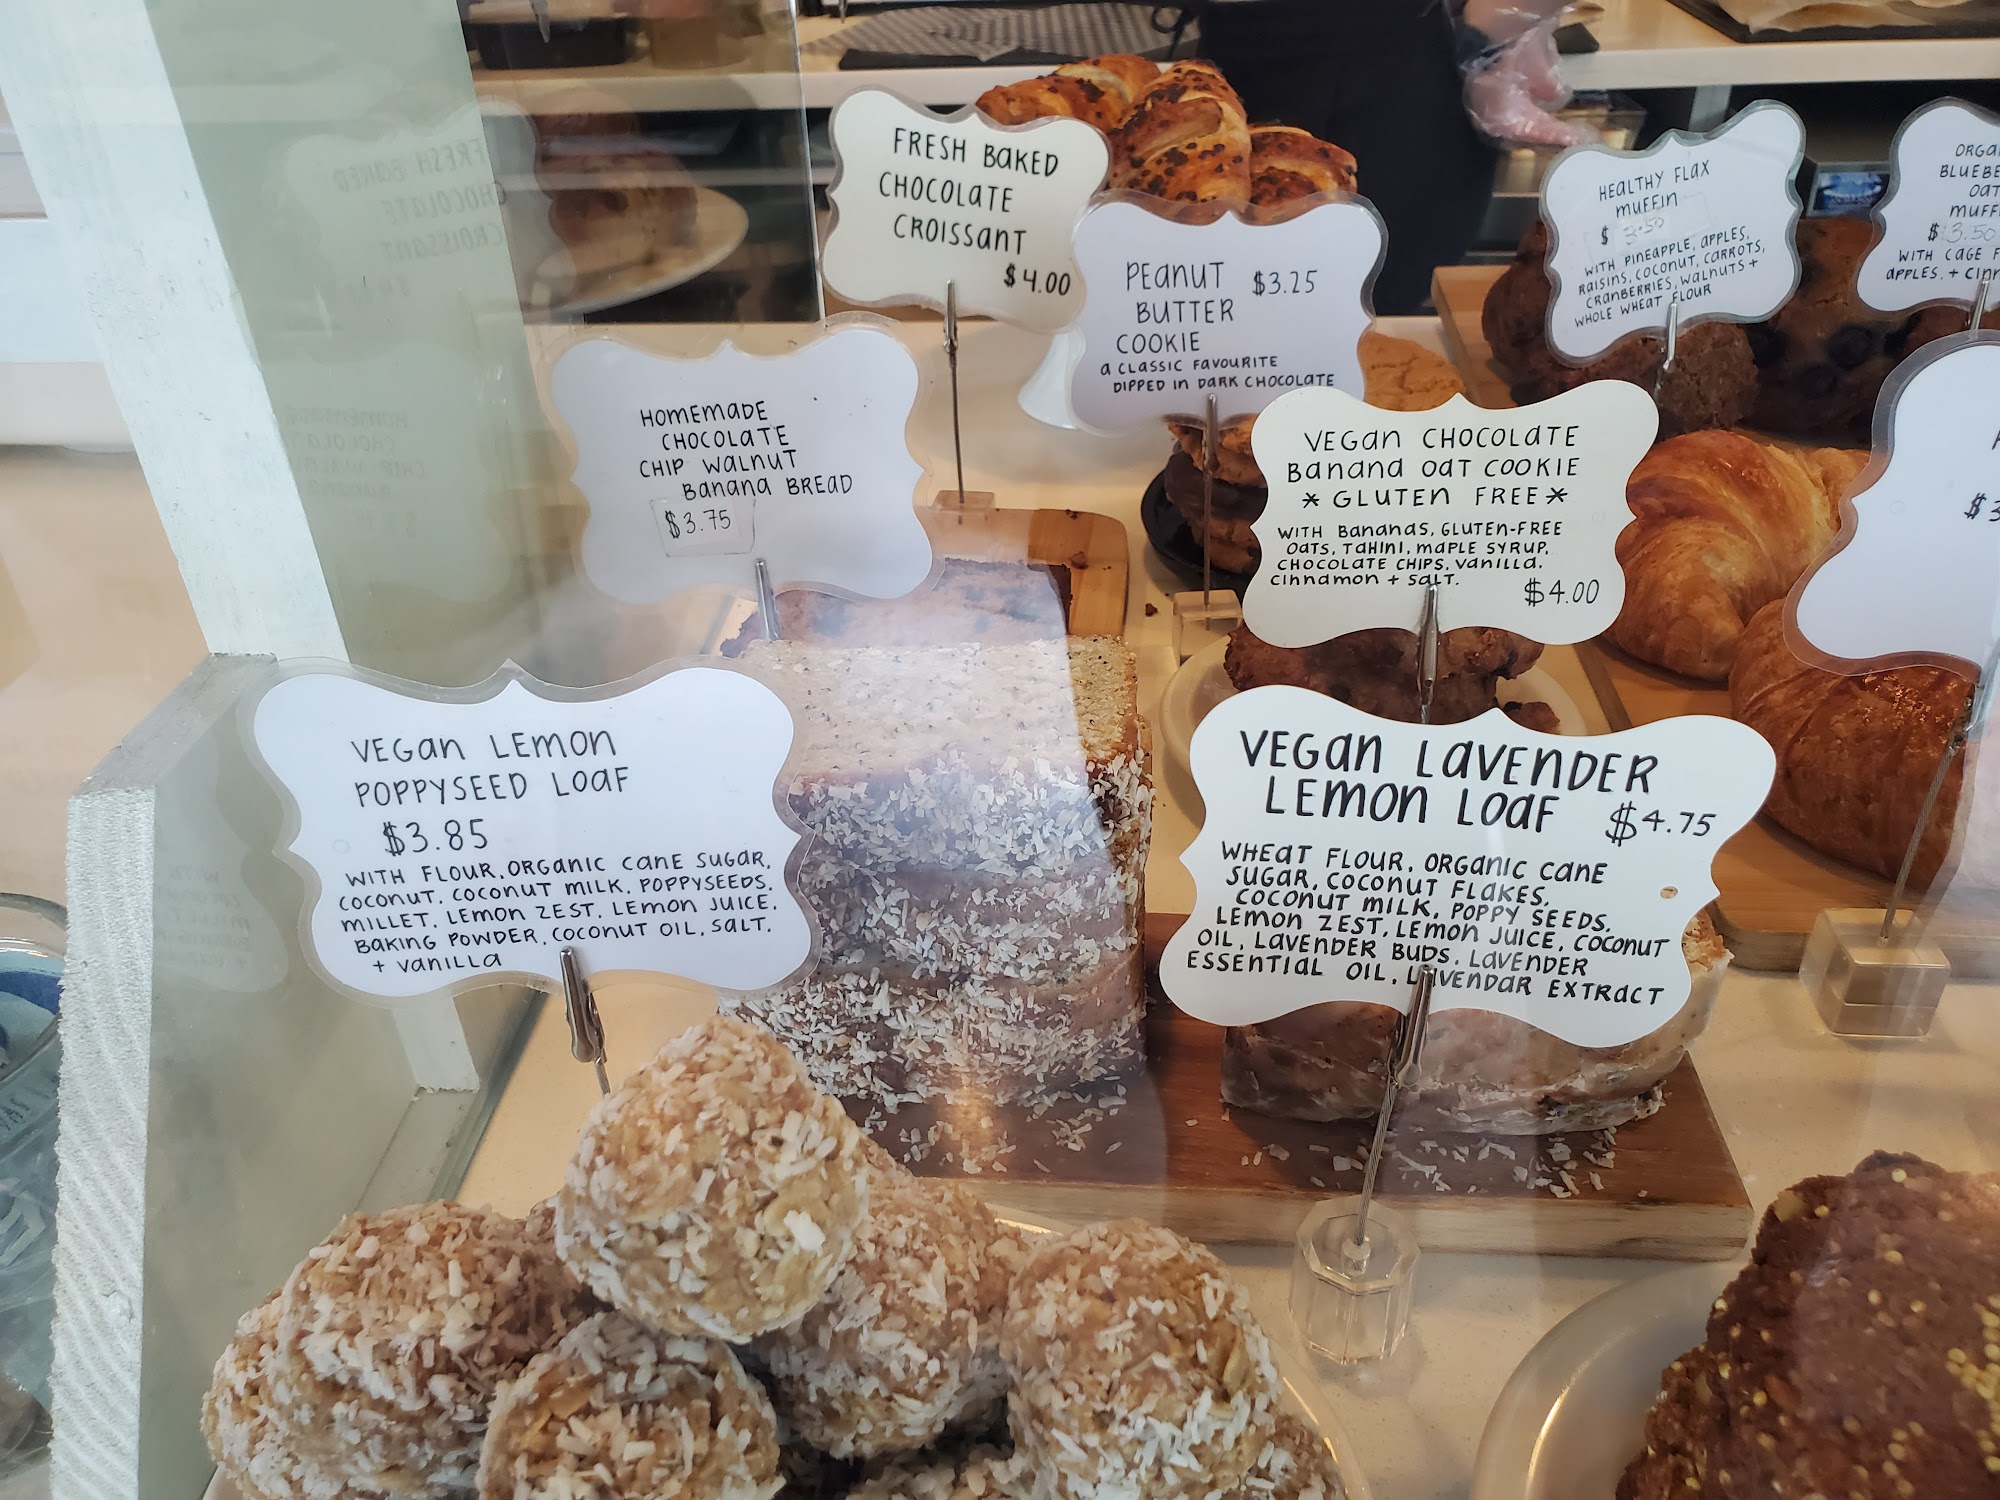 FRESH BAKED
CHOCOLATE
CROISSANT
$4.00
PEANUT
BUTTER
COOKIE
$3.25
A CLASSIC FAVOURITE
DIPPED IN DARK CHOCOLATE
HEALTHY FLAX
MUFFIN
$3.50
WITH PINEAPPLE, APPLES,
RAISINS, COCONUT, CARROTS,
CRANBERRIES, WALNUTS +
WHOLE WHEAT FLOUR
$3.50
WITH CAGE
APPLES, +
HOMEMADE
CHOCOLATE
CHIP WALNUT
BANANA BREAD
$3.75
VEGAN CHOCOLATE
BANANA OAT COOKIE
* GLUTEN FREE *
WITH BANANAS, GLUTEN-FREE
OATS, TAHINI, MAPLE SYRUP,
CHOCOLATE CHIPS, VANILLA,
CINNAMON + SALT.
$4.00
VEGAN LEMON
POPPYSEED LOAF
$3.85
WITH FLOUR, ORGANIC CANE SUGAR,
COCONUT, COCONUT MILK, POPPYSEEDS,
MILLET, LEMON ZEST, LEMON JUICE,
BAKING POWDER, COCONUT OIL, SALT,
+ VANILLA
VEGAN LAVENDER
LEMON LOAF $4.75
WHEAT FLOUR, ORGANIC CANE
SUGAR, COCONUT FLAKES,
COCONUT MILK, POPPY SEEDS,
LEMON ZEST, LEMON JUICE, COCONUT
OIL, LAVENDER BUDS, LAVENDER
ESSENTIAL OIL, LAVENDAR EXTRACT